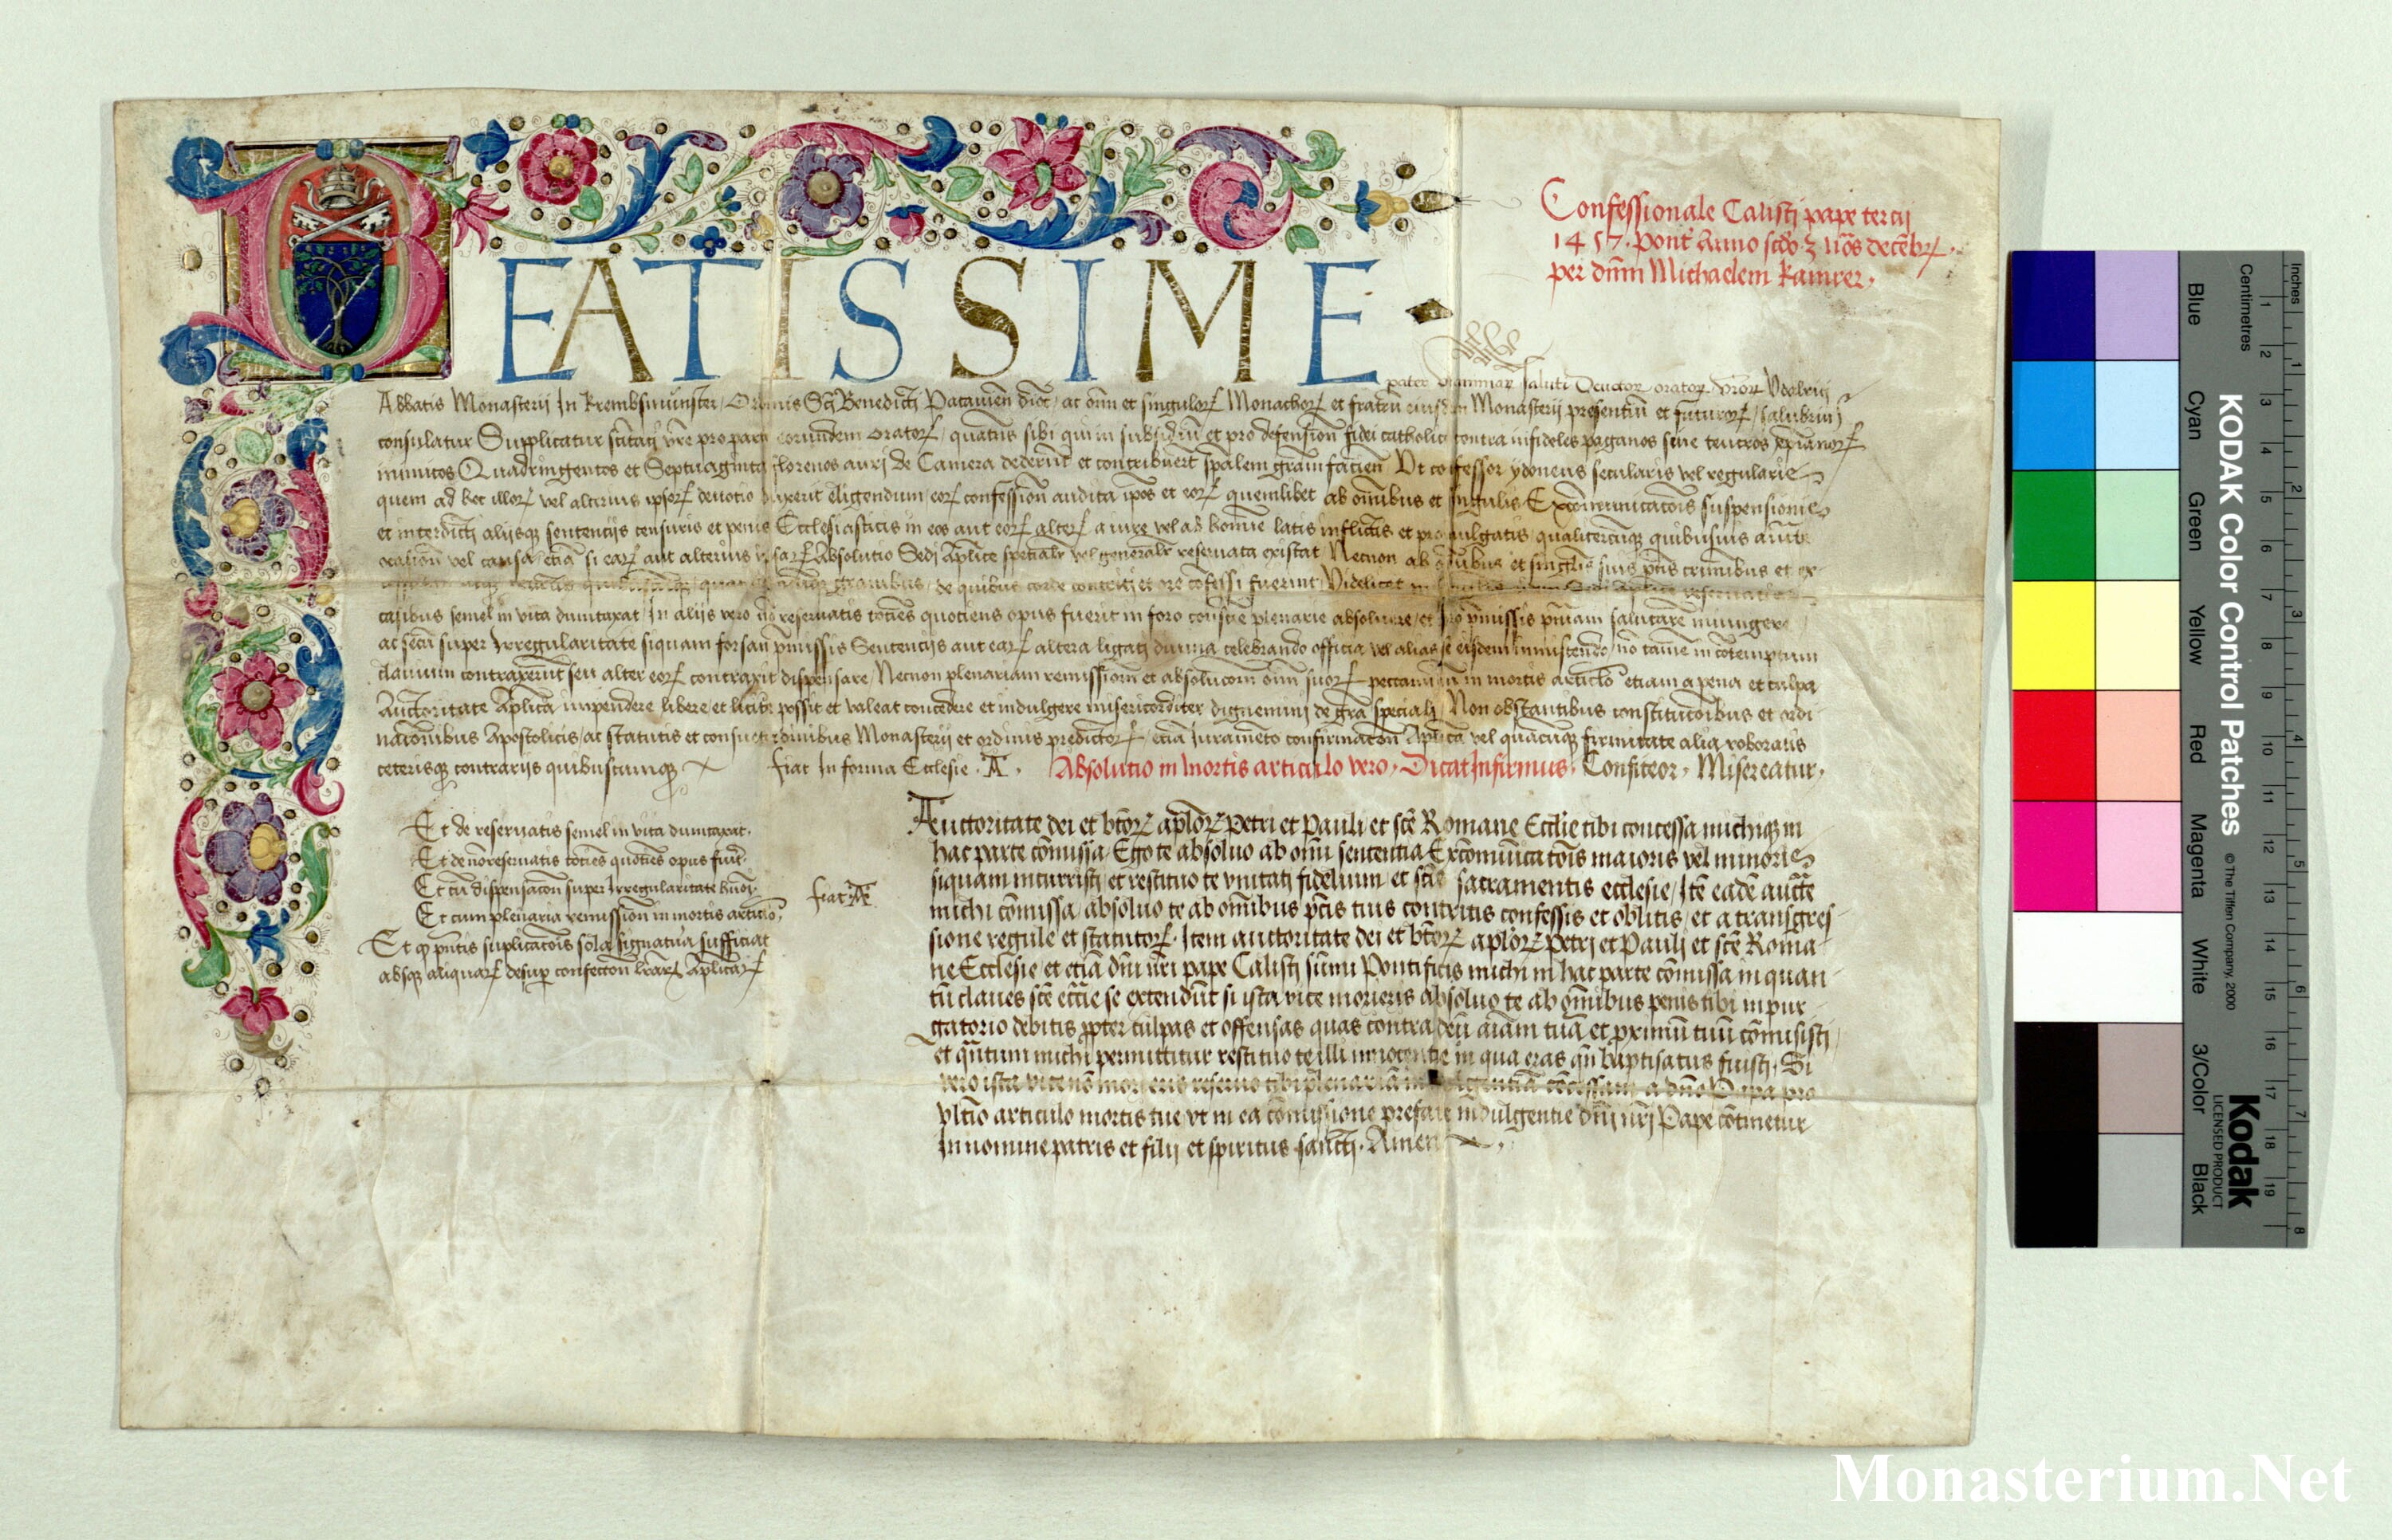 BEATISSIME
Confessionale Calisti pape tercij
1457. pont̄ Anno scd̄o 3 nōs decēbrꝭ.
per dn̄m Michaelem kamrer.
pater saluti Deuotorꝝ oratorꝝ vr̄orꝝ Vdalrici
Abbatis Monasterij In krembsmunster, Ordinis Sc̄i Benedicti Patauien̄ dioc̄, ac om̄i et singulorꝝ Monachorꝝ et fratrū eiusdem Monasterij presentiū et futurorꝝ, salubrius
consulatur Supplicatur sc̄itati vr̄e pro parte eorundem oratorꝝ, quatūs sibi qui in subsidiū et pro defension̄ fidei catholice contra infideles paganos siue teucros xp̄ianorꝝ
inimicos Quadringentos et Septuaginta florenos aurj de Camera dederūt et contribuerūt sp̄alem gram̄ facien̄ Vt confessor ydoneus secularis vel regularis
quem ad hoc illorꝝ vel alterius ipsorꝝ deuotio duxerit eligendum, eorꝝ confession̄ audita ip̄os et eorꝝ quemlibet ab om̄ibus et singulis Excōmunicacōis suspensionis
et interdicti alijsqꝫ sentencijs censuris et penis Ecclesiasticis in eos aut eorꝝ alterꝝ a iure vel ab homīe latis inflictis et promulgatis, qualitercūqꝫ quibusuis
occasiōn vel causa, etiā si earꝝ aut alterius ipsarꝝ Absolutio Sedi Ap̄lice specialr̄ vel generalr̄ reseruata existat Necnon ab om̄ibus et singlis suis pc̄tis criminibus et ex-
grauibus, de quibus corde contriti et ore cōfessi fuerint Videlicet Sedi Ap̄lice reseruatis
casibus semel in vita dumtaxat, In alijs vero nō reseruatis tociēs quotiens opus fuerit in foro consciē plenarie absoluere, et pro p̄missis pn̄iam salutarē iniungere
ac secū super Irregularitate siquam forsan p̄missis Sentencijs aut earꝝ altera ligati diuina celebrando officia vel alias se eisdem inmiscendo, nō tamē in cōtemptum
clauium contraxerint seu alter eorꝝ contraxit dispensare, Necnon plenariam remissionē et absolucōem om̄i suorꝝ peccaminū in mortis articlō etiam a pena et culpa
Auctoritate Ap̄lica impendere libere et licite possit et valeat concedere et indulgere misericorditer dignemini de gr̄a speciali, Non obstantibus constitucōibus et ordi-
nacōnibus Apostolicis, ac statutis et consuetudinibus Monasterij et ordinis predictorꝝ, etiā Juramēto confirmacōn̄ Ap̄lica vel quacūqꝫ firmitate alia roboratis
ceterisqꝫ contrarijs quibuscumqꝫ
fiat In forma Ecclesie. A.
Absolutio in mortis articulo vero. Dicat Infirmus. Confiteor. Misereatur.
Et de reseruatis semel in vita dumtaxat.
Et de nō reseruatis tociēs quociēs opus fuīt.
Et cū dispensacōn super Irregularitate hmōi.
Et cum plenaria remissiōn in mortis articlō.
Et qꝫ pn̄tis suplicacōis sola signatura sufficiat
absqꝫ aliquarꝝ desuper confectōn lr̄arꝝ Ap̄licarꝝ
fiat A
Auctoritate dei et bt̄orꝝ ap̄lorꝝ Petri et Pauli et scē Romane Ecclie tibi concessa michiqꝫ in
hac parte cōmissa, Ego te absoluo ab om̄i sententia Excōmunicacōis maioris vel minoris
siquam incurristi et restituo te vnitati fidelium et scīs sacramentis ecclesie, Itē eadē auctē
michi cōmissa, absoluo te ab om̄ibus pc̄tis tuis contritis confessis et oblitis, et a transgres-
sione regule et statutorꝝ. Item auctoritate dei et bt̄orꝝ aplōrꝝ Petri et Pauli et scē Roma-
ne Ecclesie, et etiā dn̄i nr̄i pape Calisti sūmi Pontificis michi in hac parte cōmissa in quan-
tū claues scē ecctīe se extendūt si ista vice morieris absoluo te ab om̄ibus penis tibi in pur-
gatorio debitis ꝓpter culpas et offensas quas contra deū aīam tuā et proximū tuū cōmisisti
et qn̄tum michi permittitur restituo te illi innocentie in qua eras qn̄ baptisatus fuisti. Si
vero ista vice nō morieris reseruo tibi plenariā indulgentiā cōcessam a dn̄o Papa pro
vltīo articulo mortis tue vt in ea cōmissione prefate indulgentie dn̄i nr̄i Pape cōtinetur
In nomine patris et filij et spiritus sancti. Amen
Monasterium.Net
KODAK Color Control Patches
© The Tiffen Company, 2000
Kodak
LICENSED PRODUCT
Blue Cyan Green Yellow Red Magenta White 3/Color Black
Centimetres
1 2 3 4 5 6 7 8 9 10 11 12 13 14 15 16 17 18 19
Inches
1 2 3 4 5 6 7 8